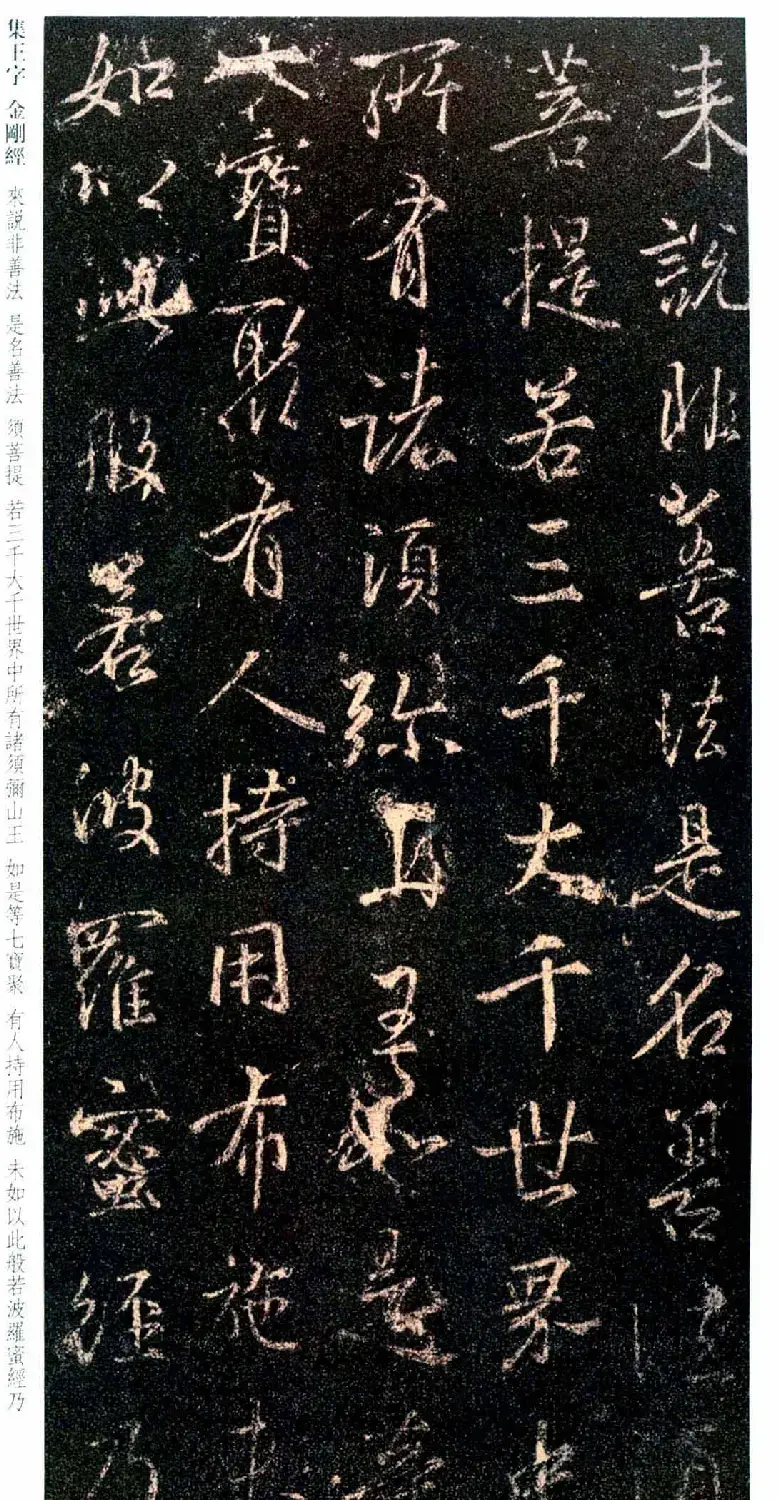 来說非善法是名善法須
菩提若三千大千世界中
所有諸須弥山王如是等
七寶聚有人持用布施未
如以此般若波羅蜜經乃
集王字 金剛經 來說非善法 是名善法 須菩提 若三千大千世界中所有諸須彌山王 如是等七寶聚 有人持用布施 未如以此般若波羅蜜經乃